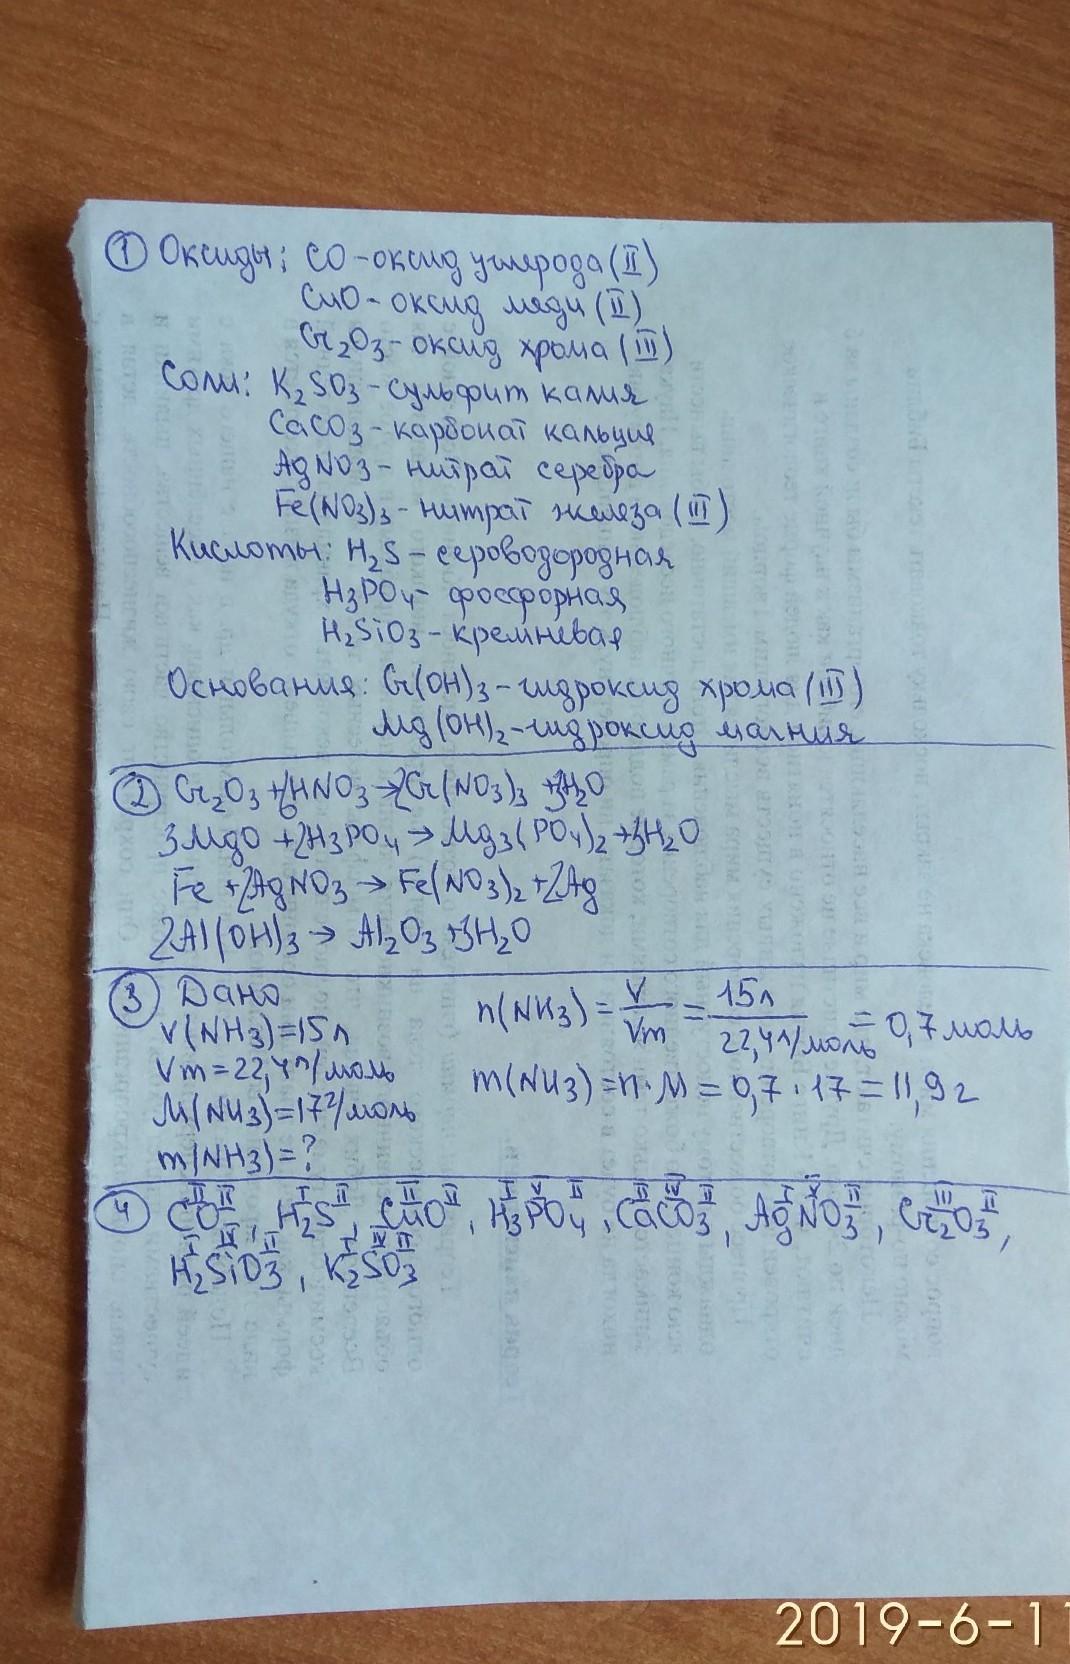 ① Оксиды: CO - оксид углерода (II)
CuO - оксид меди (II)
Cr₂O₃ - оксид хрома (III)
Соли: K₂SO₃ - сульфит калия
CaCO₃ - карбонат кальция
AgNO₃ - нитрат серебра
Fe(NO₃)₃ - нитрат железа (III)
Кислоты: H₂S - сероводородная
H₃PO₄ - фосфорная
H₂SiO₃ - кремневая
Основания: Cr(OH)₃ - гидроксид хрома (III)
Mg(OH)₂ - гидроксид магния
② Cr₂O₃ + 6HNO₃ → 2Cr(NO₃)₃ + 3H₂O
3MgO + 2H₃PO₄ → Mg₃(PO₄)₂ + 3H₂O
Fe + 2AgNO₃ → Fe(NO₃)₂ + 2Ag
2Al(OH)₃ → Al₂O₃ + 3H₂O
③ Дано
V(NH₃) = 15л
Vm = 22,4л/моль
M(NH₃) = 17г/моль
m(NH₃) = ?
n(NH₃) = V/Vm = 15л/22,4л/моль = 0,7 моль
m(NH₃) = n · M = 0,7 · 17 = 11,9 г
④ C^II O^II, H₂^I S^II, Cu^II O^II, H₃^I P^V O₄^II, Ca^II C^IV O₃^II, Ag^I N^V O₃^II, Cr₂^III O₃^II,
H₂^I Si^IV O₃^II, K₂^I S^IV O₃^II
2019-6-11